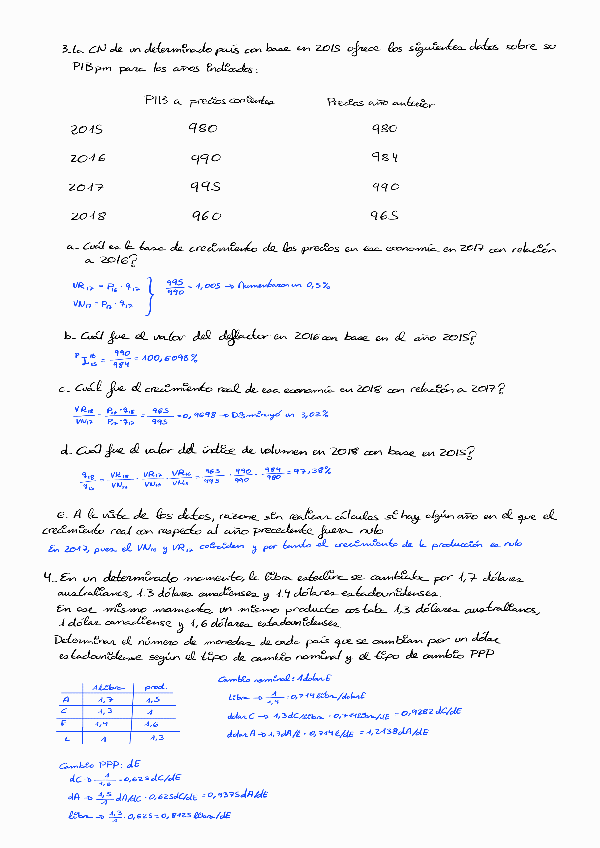 3. La CN de un determinado país con base en 2015 ofrece los siguientes datos sobre su
PIBpm para los años indicados:
PIB a precios corrientes Precios año anterior
2015 980 980
2016 990 984
2017 995 990
2018 960 965
a. Cuál es la tasa de crecimiento de los precios en esa economía en 2017 con relación
a 2016?
VR17 = P16 · q17
VN17 = P17 · q17
995/990 = 1,005 → Aumentaron un 0,5%
b. Cuál fue el valor del deflactor en 2016 con base en el año 2015?
P I 16/15 = 990/984 = 100,6098%
c. Cuál fue el crecimiento real de esa economía en 2018 con relación a 2017?
VR18/VN17 = P17·q18/P17·q17 = 965/995 = 0,9698 → Disminuyó un 3,02%
d. Cuál fue el valor del índice de volumen en 2018 con base en 2015?
q18/q15 = VR18/VN17 · VR17/VN16 · VR16/VN15 = 965/995 · 990/990 · 984/980 = 97,38%
e. A la vista de los datos, razone sin realizar cálculos si hay algún año en el que el
crecimiento real con respecto al año precedente fuera nulo
En 2017, pues el VN16 y VR17 coinciden y por tanto el crecimiento de la producción es nulo
4. En un determinado momento, la libra esterlina se cambiaba por 1,7 dólares
australianos, 1.3 dólares canadienses y 1.4 dólares estadounidenses.
En ese mismo momento un mismo producto costaba 1,5 dólares australianos,
1 dólar canadiense y 1,6 dólares estadounidenses
Determinar el número de monedas de cada país que se cambian por un dólar
estadounidense según el tipo de cambio nominal y el tipo de cambio PPP
Cambio nominal: 1 dolar E
1 libra prod.
A 1,7 1,5
C 1,3 1
E 1,4 1,6
L 1 1,3
libra → 1/1,4 = 0,714 libra/dolar E
dolar C → 1,3 dC/libra · 0,714 libra/dE = 0,9282 dC/dE
dolar A → 1,7 dA/l · 0,714 l/dE = 1,2138 dA/dE
Cambio PPP: dE
dC → 1/1,6 = 0,625 dC/dE
dA → 1,5/1 dA/dC · 0,625 dC/dE = 0,9375 dA/dE
libra → 1,3/1 · 0,625 = 0,8125 libra/dE